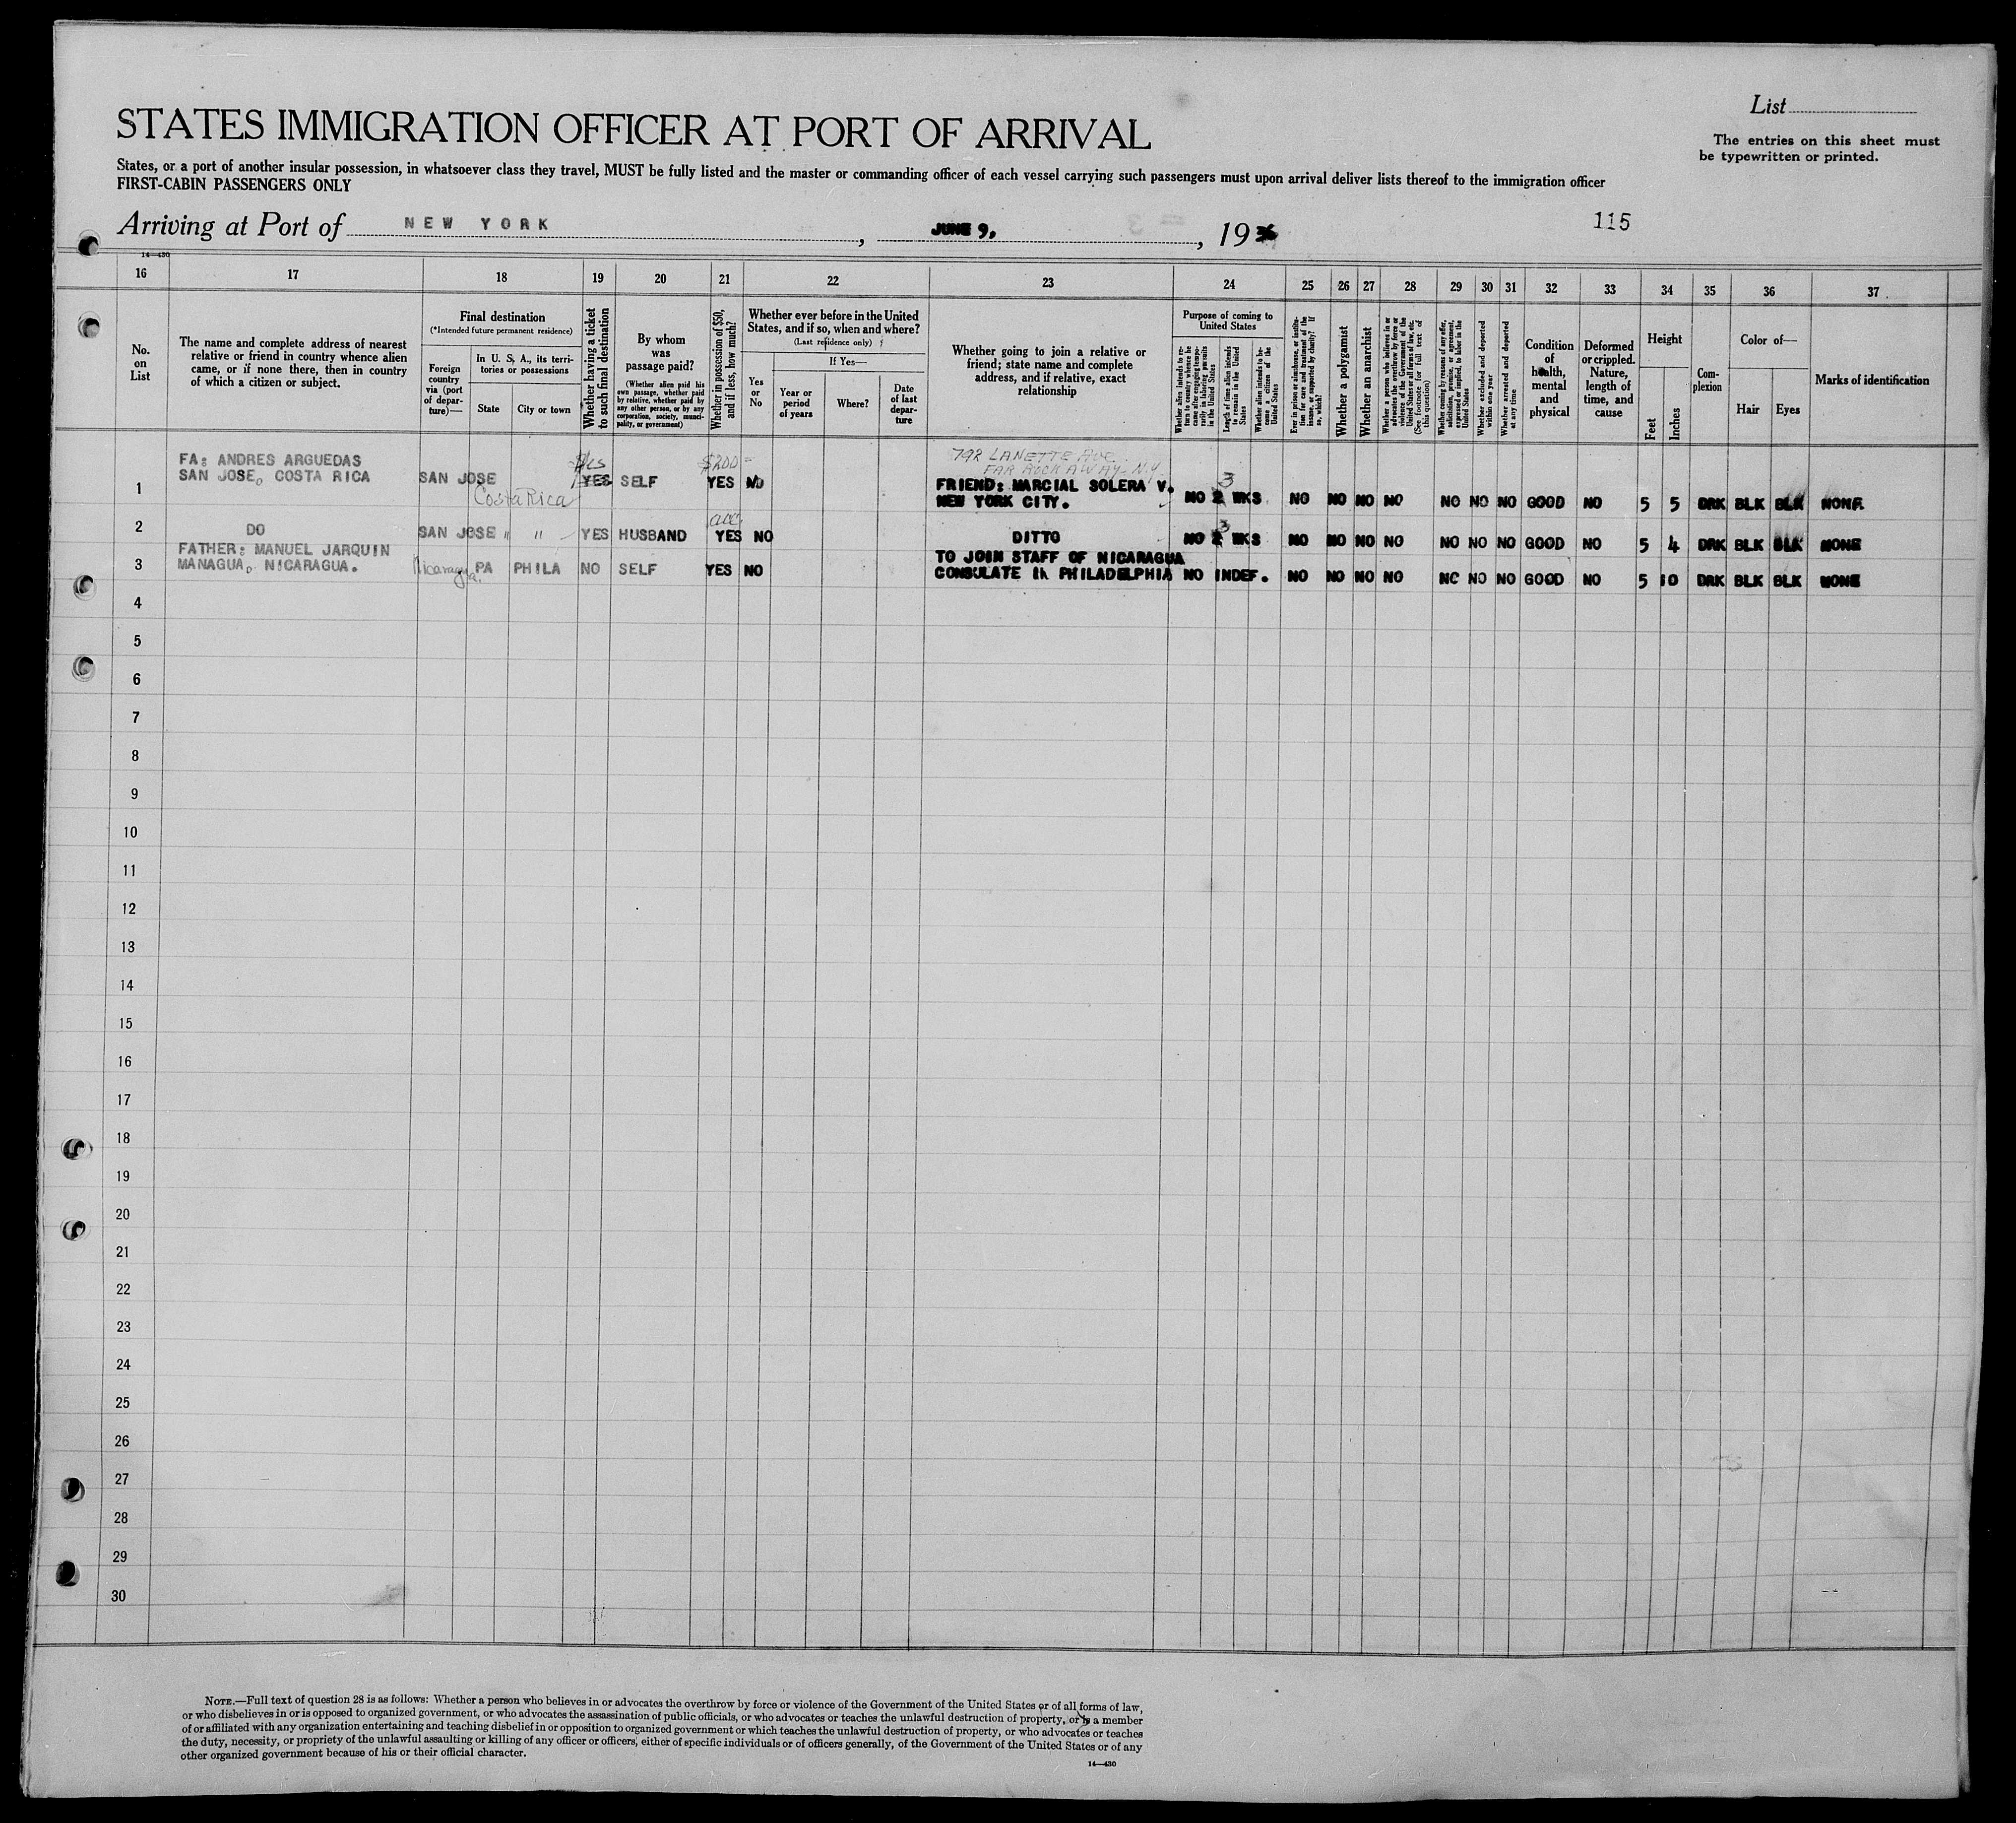 List
STATES IMMIGRATION OFFICER AT PORT OF ARRIVAL
The entries on this sheet must
be typewritten or printed.
States, or a port of another insular possession, in whatsoever class they travel, MUST be fully listed and the master or commanding officer of each vessel carrying such passengers must upon arrival deliver lists thereof to the immigration officer
FIRST-CABIN PASSENGERS ONLY
Arriving at Port of NEW YORK, JUNE 9, 1936
115
14—430
16 17 18 19 20 21 22 23 24 25 26 27 28 29 30 31 32 33 34 35 36 37
No.
on
List
The name and complete address of nearest
relative or friend in country whence alien
came, or if none there, then in country
of which a citizen or subject.
Final destination
(*Intended future permanent residence)
Foreign
country
via (port
of depar-
ture)—
In U. S. A., its terri-
tories or possessions
State
City or town
Whether having a ticket
to such final destination
By whom
was
passage paid?
(Whether alien paid his
own passage, whether paid
by relative, whether paid by
any other person, or by any
corporation, society, munici-
pality, or government)
Whether in possession of $50,
and if less, how much?
Whether ever before in the United
States, and if so, when and where?
(Last residence only)
Yes
or
No
If Yes—
Year or
period
of years
Where?
Date
of last
depar-
ture
Whether going to join a relative or
friend; state name and complete
address, and if relative, exact
relationship
Purpose of coming to
United States
Whether alien intends to re-
turn to country whence he
came after engaging tempo-
rarily in laboring pursuits
in the United States
Length of time alien intends
to remain in the United
States
Whether alien intends to be-
come a citizen of the
United States
Ever in prison or almshouse, or institu-
tion for care and treatment of the
insane, or supported by charity? If
so, which?
Whether a polygamist
Whether an anarchist
Whether a person who believes in or
advocates the overthrow by force or
violence of the Government of the
United States or all forms of law, etc.
(See footnote for full text of
this question)
Whether coming by reasons of any offer,
solicitation, promise, or agreement,
expressed or implied, to labor in the
United States
Whether excluded and deported
within one year
Whether arrested and deported
at any time
Condition
of
health,
mental
and
physical
Deformed
or crippled.
Nature,
length of
time, and
cause
Height
Feet
Inches
Com-
plexion
Color of—
Hair
Eyes
Marks of identification
FA: ANDRES ARGUEDAS
792 LANETTE AVE
FAR ROCKAWAY-N.Y.
SAN JOSE, COSTA RICA
1 SAN JOSE Costa Rica Yes YES SELF $200 YES NO FRIEND: MARCIAL SOLERA V.
NEW YORK CITY. NO 3 WKS NO NO NO NO NO NO NO GOOD NO 5 5 DRK BLK BLK NONE
2 DO SAN JOSE " " YES HUSBAND YES NO DITTO NO 3 WKS NO NO NO NO NO NO NO GOOD NO 5 4 DRK BLK BLK NONE
FATHER: MANUEL JARQUIN
TO JOIN STAFF OF NICARAGUA
3 MANAGUA, NICARAGUA. Nicaragua PA PHILA NO SELF YES NO CONSULATE IN PHILADELPHIA NO INDEF. NO NO NO NO NO NO NO GOOD NO 5 10 DRK BLK BLK NONE
4
5
6
7
8
9
10
11
12
13
14
15
16
17
18
19
20
21
22
23
24
25
26
27
28
29
30
NOTE.—Full text of question 28 is as follows: Whether a person who believes in or advocates the overthrow by force or violence of the Government of the United States or of all forms of law,
or who disbelieves in or is opposed to organized government, or who advocates the assassination of public officials, or who advocates or teaches the unlawful destruction of property, or is a member
of or affiliated with any organization entertaining and teaching disbelief in or opposition to organized government or which teaches the unlawful destruction of property, or who advocates or teaches
the duty, necessity, or propriety of the unlawful assaulting or killing of any officer or officers, either of specific individuals or of officers generally, of the Government of the United States or of any
other organized government because of his or their official character.
14—430